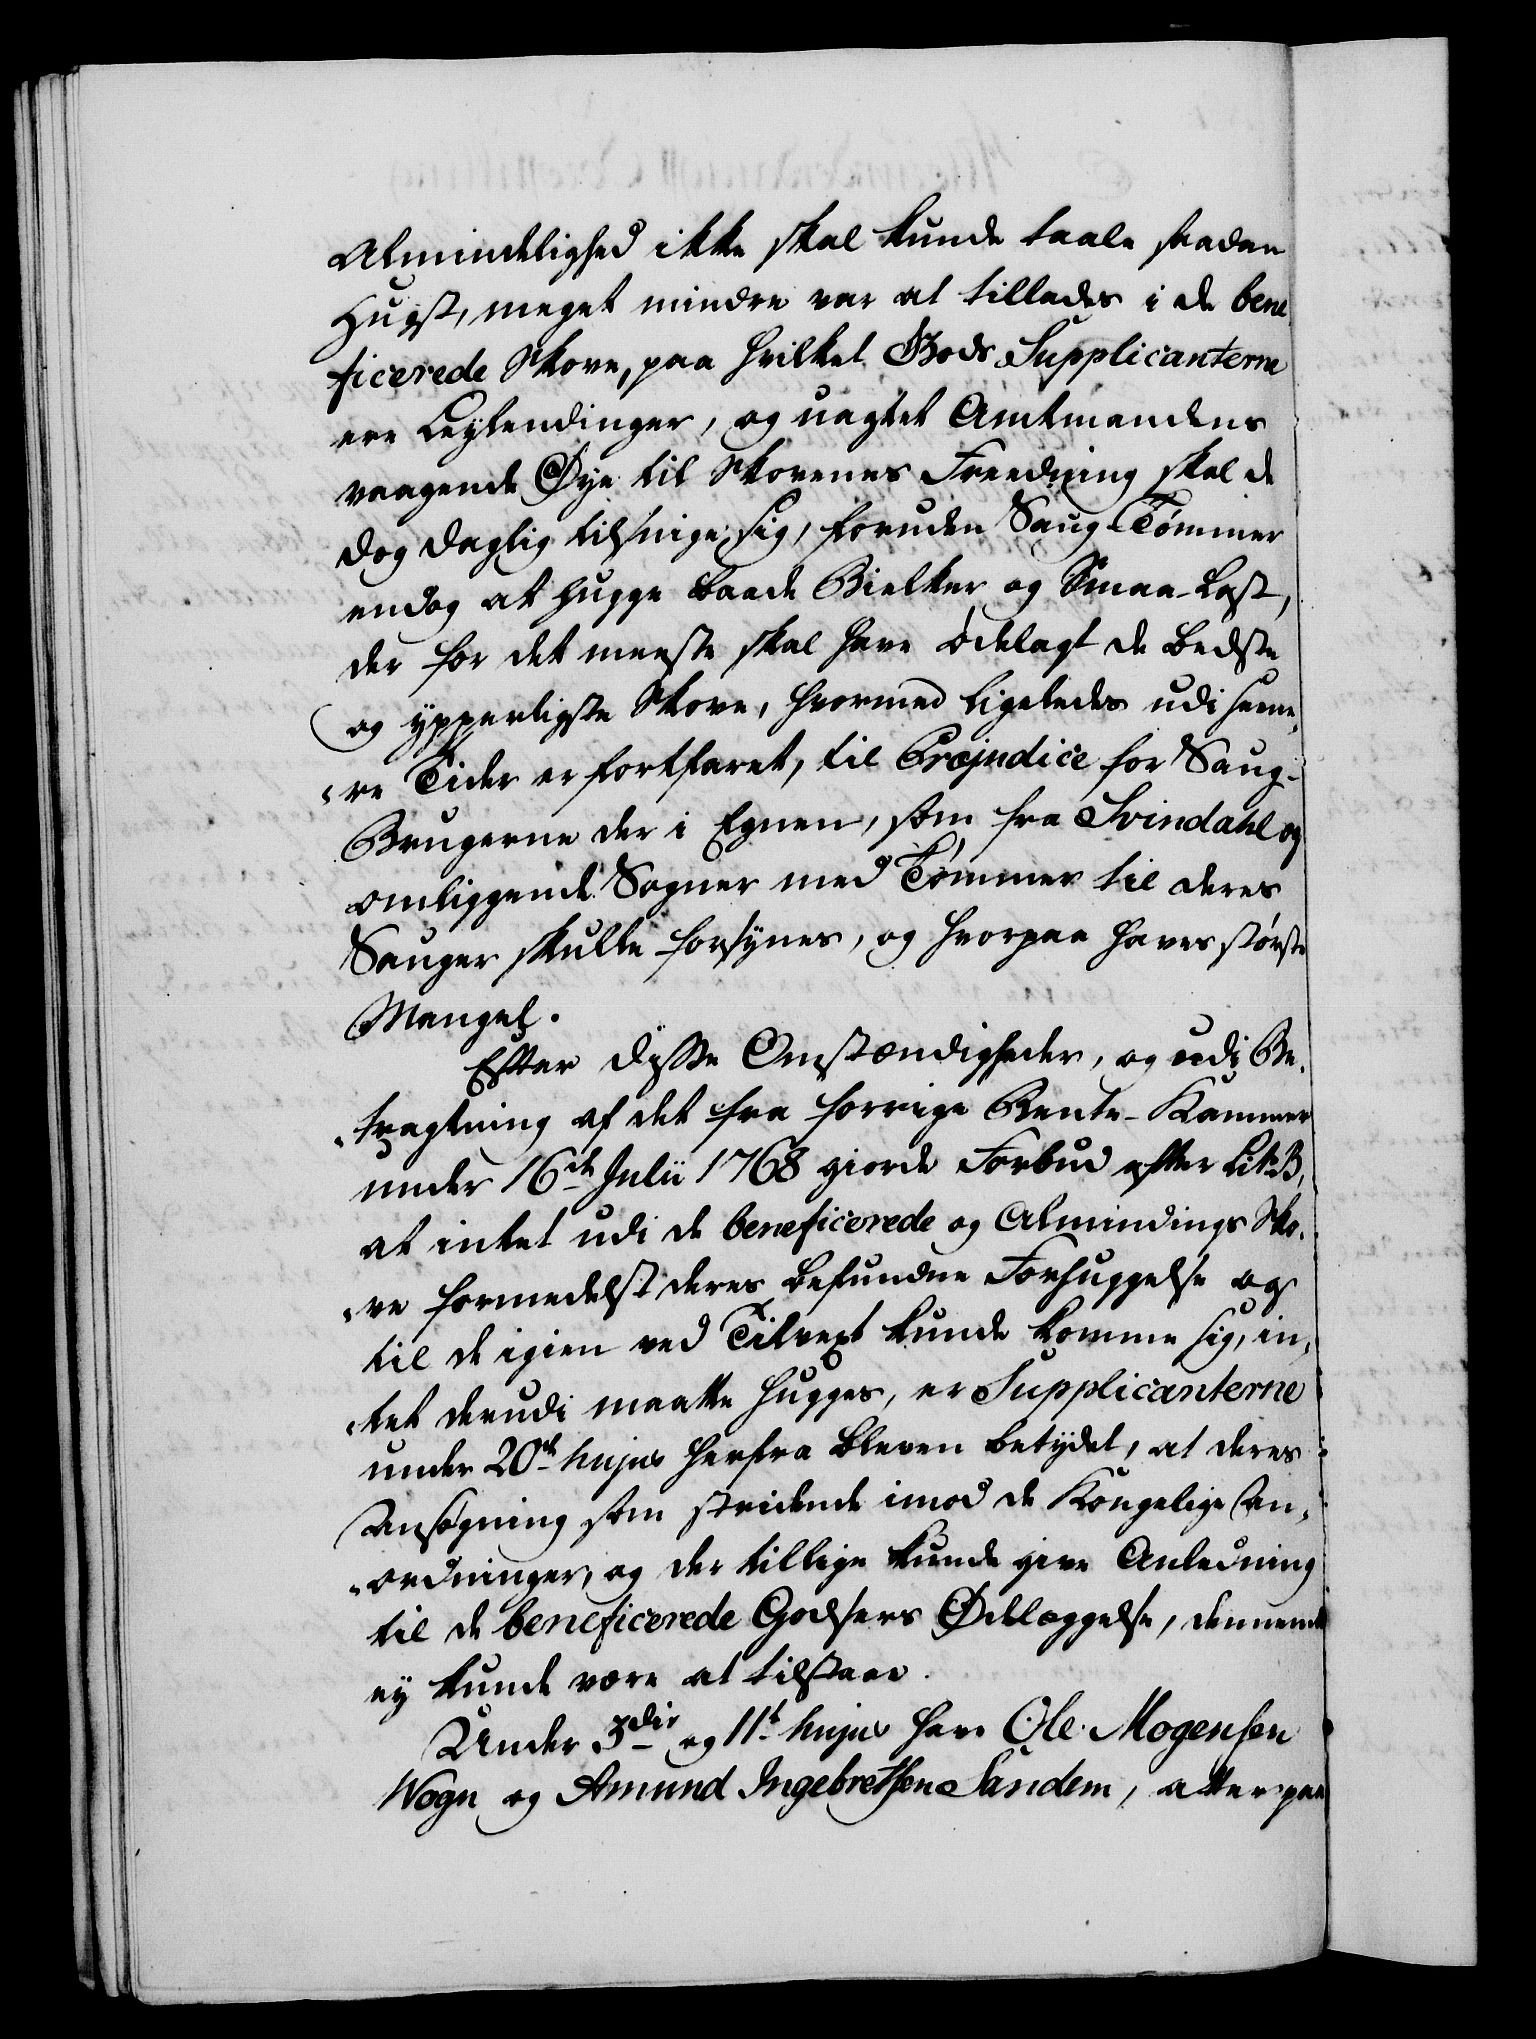 Almindelighed ikke skal kunde taale saadan
Hugst, meget mindre var at tillades i de bene
ficerede Skove, paa hvilket Gods Supplicanterne
ere Leylendinger, og uagtet Amtmandens
vaagende Øye til Skovenes Freedning skal de
dog daglig tilsnige sig, foruden Saug-Tømmer
endog at hugge baade Bielker og Smaa-Last,
der for det meeste skal have ødelagt de bedste
og ypperligste Skove, hvormed ligeledes udi seene,
"re Tider er fortfaret, til Præjudice for Saug-
Brugerne der i Egnen, som fra Svindahl og
omliggende Sogner med Tømmer til deres
Sauger skulle forsynes, og hvorpaa haves største
Mangel.
Efter disse Omstændigheder, og udi Be,
"tragtning af det fra forrige Rente-Kammer
under 16de Julii 1768 giorde Forbud efter Lit. B,
at intet udi de beneficerede og Almindings Sko,
"ve formedelst deres befundne Forhuggelse og
til de igien ved Tilvext kunde komme sig, in,
"tet derudi maatte hugges, er Supplicanterne
under 20de hujus herfra bleven betydet, at deres
Ansøgning som stridende imod de Kongelige An,
"ordninger, og der tillige kunde give Anledning
til de beneficerede Godsers Ødelæggelse, dennem
ey kunde være at tilstaae.
Under 3die og 11t hujus have Ole Mogensen
Wogn og Amund Ingebretsen Sandem, atter paa